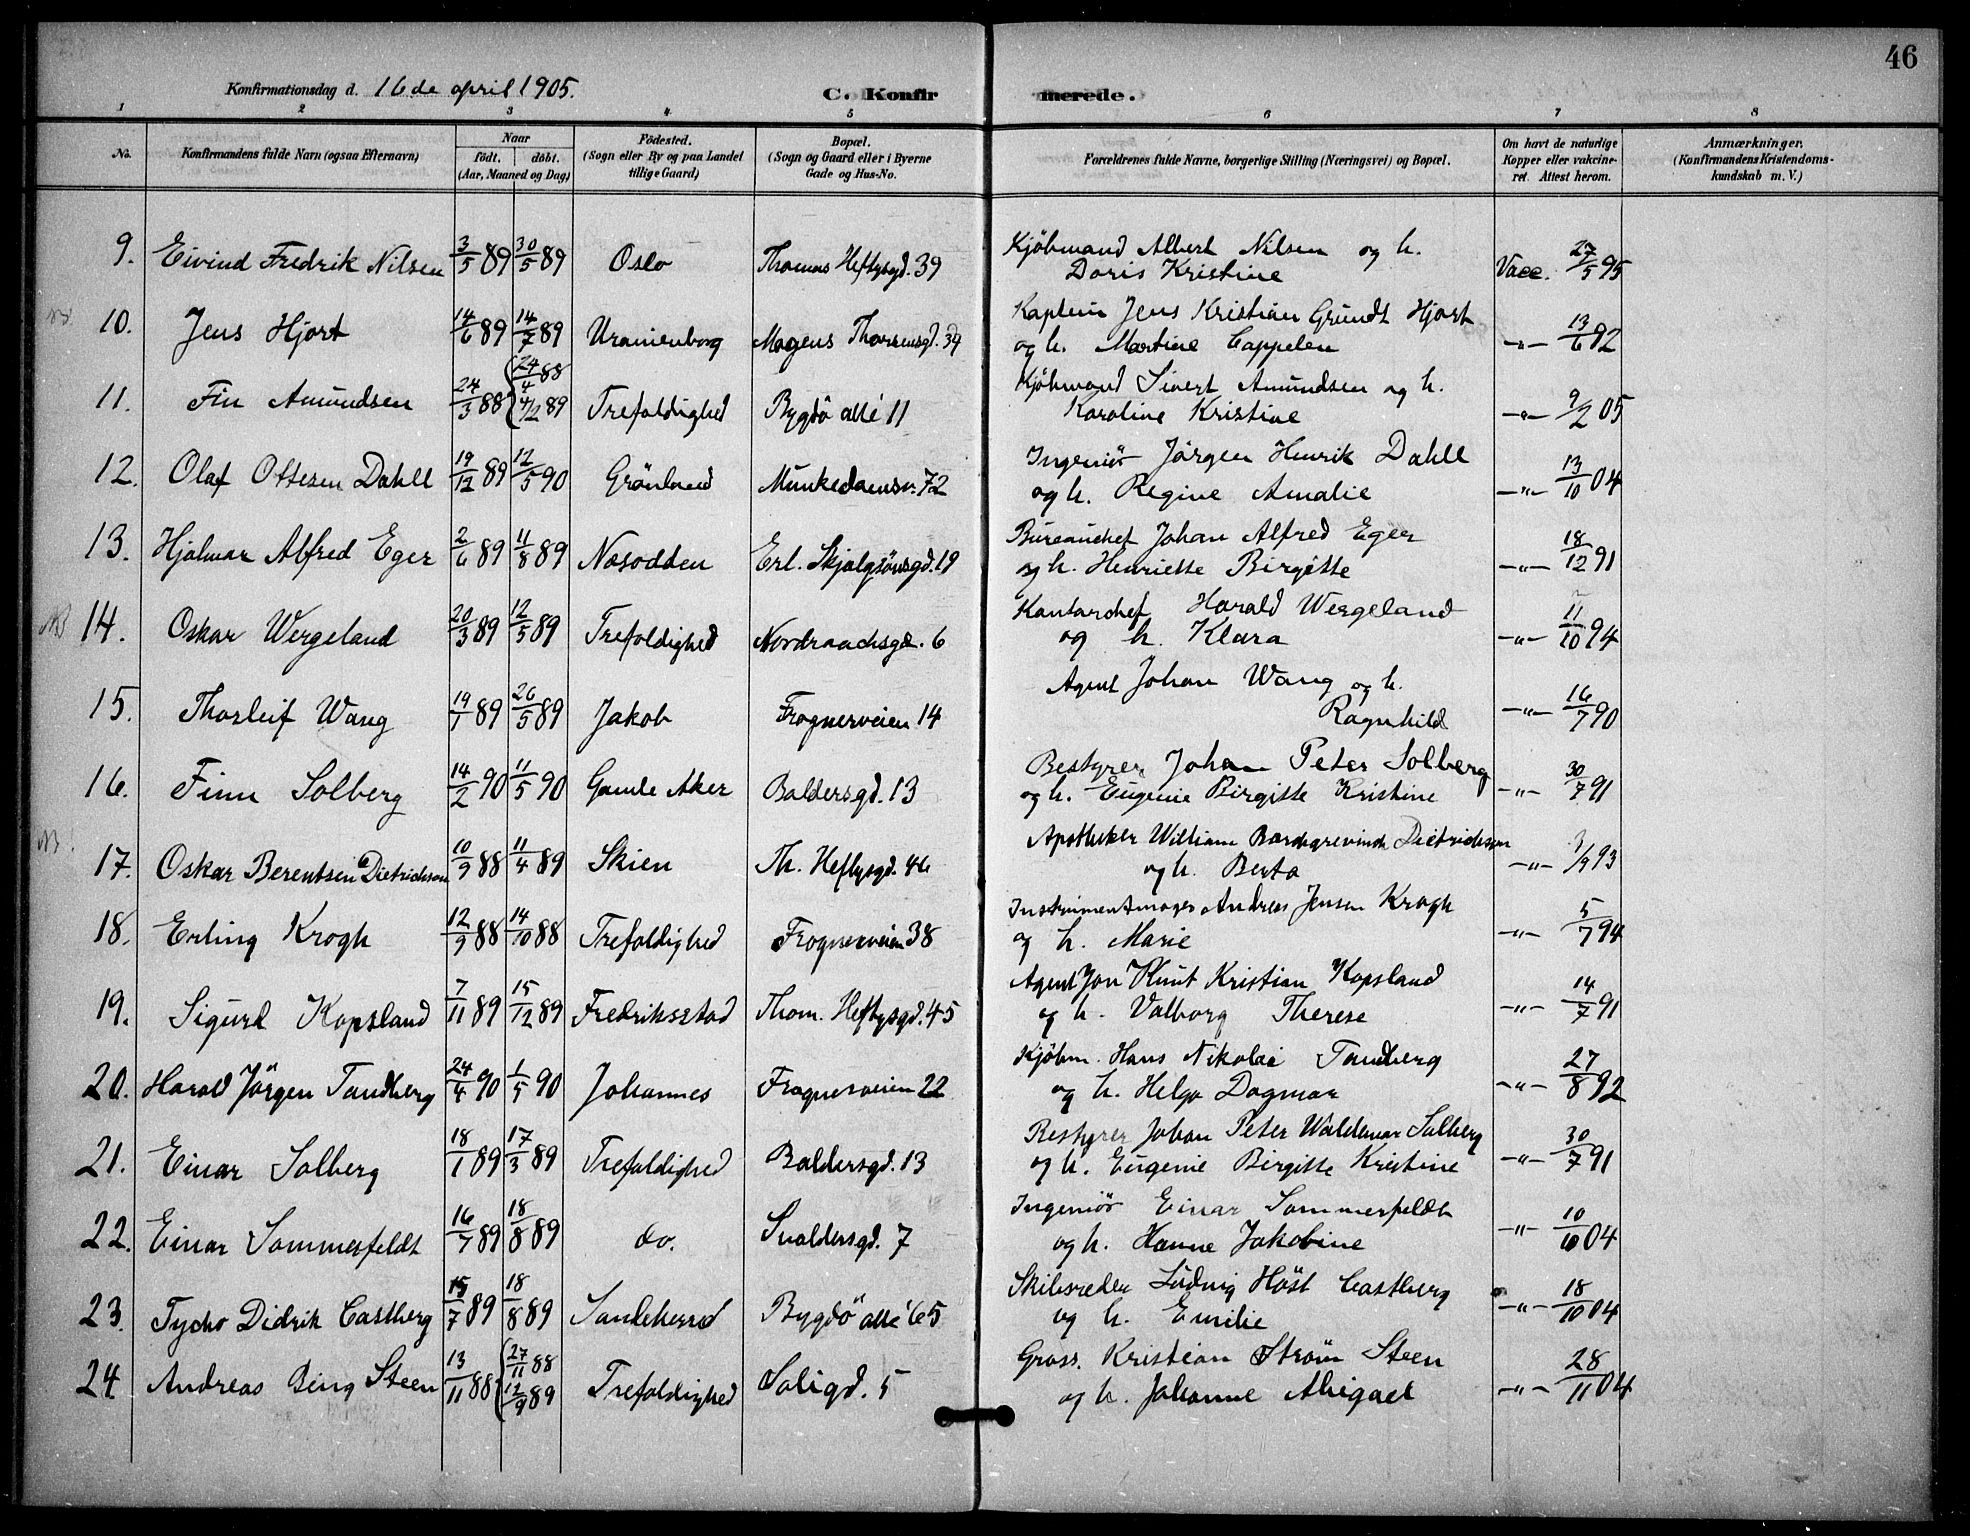 46
Konfirmationsdag d. 16de april 1905.
C. Konfirmerede.
1 2 3 4 5 6 7 8
No.
Konfirmandens fulde Navn (ogsaa Efternavn)
Naar
födt. döbt.
(Aar, Maaned og Dag)
Födested.
(Sogn eller By og paa Landet
tillige Gaard)
Bopæl.
(Sogn og Gaard eller i Byerne
Gade og Hus-No.
Forældrenes fulde Navne, borgerlige Stilling (Næringsvei) og Bopæl.
Om havt de naturlige
Kopper eller vakcine-
ret. Attest herom.
Anmærkninger.
(Konfirmandens Kristendoms-
kundskab m. V.)
9. Eivind Fredrik Nilsen 3/5 89 30/5 89 Oslo Thomas Heftysgd. 39 Kjöbmand Albert Nilsen og h.
Doris Kristine Vacc. 27/5 95
10. Jens Hjort 14/6 89 14/7 89 Uranienborg Mogens Thorsensgd. 39 Kaptein Jens Kristian Grundt Hjort
og h. Martine Cappelen -"- 13/6 92
11. Fin Amundsen 24/3 88 24/4 88 4/12 89 Trefoldighed Bygdö allé 11 Kjöbmand Sivert Amundsen og h.
Karoline Kristine -"- 9/2 05
12. Olaf Ottesen Dahll 19/12 89 12/5 90 Grönland Munkedamsv. 72 Ingeniör Jörgen Henrik Dahll
og h. Regine Amalie -"- 13/10 04
13. Hjalmar Alfred Eger 2/6 89 11/8 89 Nesodden Erl. Skjalgsönsgd. 19 Bureauchef Johan Alfred Eger
og h. Henriette Birgitte -"- 18/12 91
NB 14. Oskar Wergeland 20/3 89 12/5 89 Trefoldighed Nordraachsgd. 6 Kontorchef Harald Wergeland
og h. Klara -"- 11/10 94
15. Thorleif Wang 19/1 89 26/5 89 Jakob Frognerveien 14 Agent Johan Wang og h.
Ragnhild -"- 16/7 90
16. Finn Solberg 14/2 90 11/5 90 Gamle Aker Baldersgd. 13 Bestyrer Johan Peter Solberg
og h. Eugenie Birgitte Kristine -"- 30/7 91
17. Oskar Berentsen Dietrichson 10/9 88 11/4 89 Skien Th. Heftysgd. 46 Apotheker William Dietrichson
og h. Berta -"- 3/9 93
18. Erling Krogh 12/9 88 14/10 88 Trefoldighed Frognerveien 38 Instrumentmager Andreas Jensen Krogh
og h. Marie -"- 5/7 94
19. Sigurd Kopsland 7/11 89 15/12 89 Fredriksstad Thom. Heftysgd. 45 Agent Jon Knut Kristian Kopsland
og h. Valborg Therese -"- 14/7 91
20. Harald Jörgen Tandberg 24/4 90 1/5 90 Johannes Frognerveien 22 Kjöbm. Hans Nikolai Tandberg
og h. Helga Dagmar -"- 27/8 92
21. Einar Solberg 18/1 89 17/3 89 Trefoldighed Baldersgd. 13 Bestyrer Johan Peter Waldemar Solberg
og h. Eugenie Birgitte Kristine -"- 30/7 91
22. Einar Sommerfeldt 16/7 89 18/8 89 do. Svoldersgd. 7 Ingeniör Einar Sommerfeldt
og h. Hanne Jakobine -"- 10/10 04
23. Tycho Didrik Castberg 15/7 89 18/8 89 Sandeherred Bygdö allé 65 Skibsreder Ludvig Höst Castberg
og h. Emilie -"- 18/10 04
24 Andreas Bing Steen 13/11 88 27/11 88 12/9 89 Trefoldighed Soligd. 5 Gross. Kristian Ström Steen
og h. Johanne Abigael -"- 28/11 04